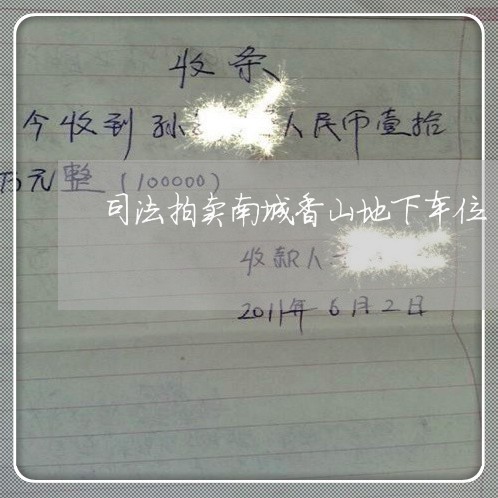 收条
今收到孙 人民币壹拾
万元整(100000)
司法拍卖南城香山地下车位
收款人
2011年6月2日